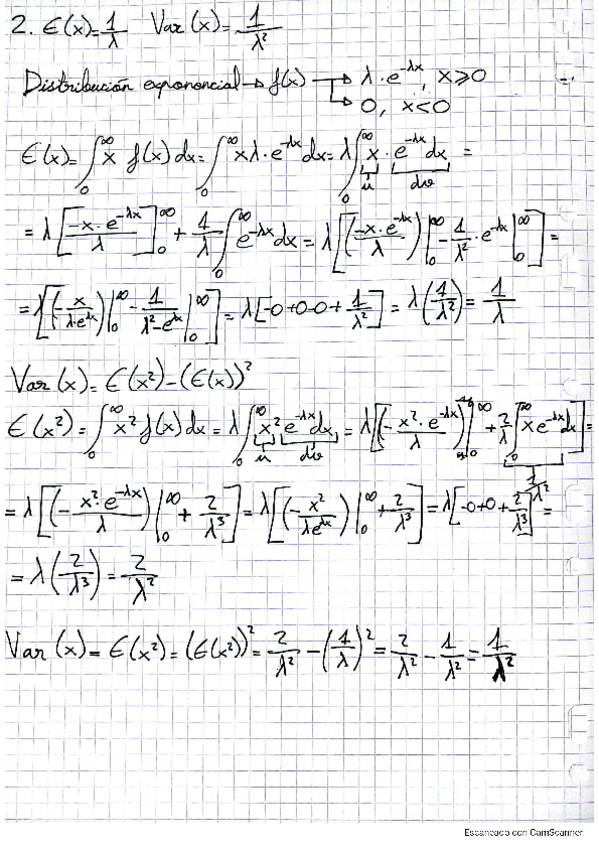 2. E(x)=1/λ Var(x)=1/λ²
Distribución exponencial → f(x) → λ·e^(-λx), x⩾0
→ 0, x<0
E(x)= ∫₀^∞ x f(x)dx= ∫₀^∞ xλ·e^(-λx)dx= λ∫₀^∞ x·e^(-λx)dx =
u dv
= λ[-x·e^(-λx)/λ]₀^∞ + 1/λ ∫₀^∞ e^(-λx)dx = λ[(-x·e^(-λx)/λ)|₀^∞ - 1/λ²·e^(-λx)|₀^∞] =
= λ[(-x/λ·e^(λx))|₀^∞ - 1/λ²-e^(λx)|₀^∞] = λ[-0+0-0+1/λ²] = λ(1/λ²)= 1/λ
Var(x)= E(x²)-(E(x))²
E(x²)= ∫₀^∞ x² f(x)dx = λ∫₀^∞ x² e^(-λx)dx = λ[(-x²·e^(-λx)/λ)|₀^∞ + 2/λ ∫₀^∞ xe^(-λx)dx]=
u dv 1/λ²
= λ[(-x²·e^(-λx)/λ)|₀^∞ + 2/λ³] = λ[(-x²/λe^(λx))|₀^∞ + 2/λ³] = λ[-0+0+2/λ³] =
= λ(2/λ³) = 2/λ²
Var(x)= E(x²)= (E(x²))²= 2/λ² -(1/λ)² = 2/λ² - 1/λ² = 1/λ²
Escaneado con CamScanner